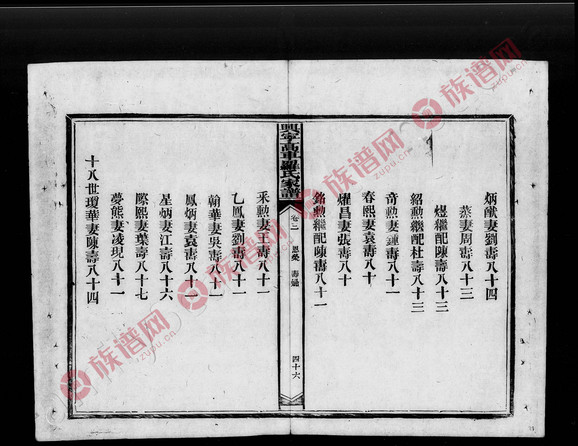 炳猷妻劉壽八十四
蒸妻周壽八十三
煜繼配陳壽八十三
紹勲繼配杜壽八十三
奇勲妻鍾壽八十
春熙妻袁壽八十
燿昌妻張壽八十
銘勲繼配陳壽八十一
興寧高車羅氏家譜
卷二
恩榮
壽過
四十六
采勲妻王壽八十一
乙鳳妻劉壽八十一
翰華妻吳壽八十一
鳳炳妻袁壽八十一
星炳妻江壽八十六
際熙妻葉壽八十七
夢熊妻凌現八十一
十八世瓊華妻陳壽八十四
族谱网
zupu.cn
族谱网
zupu.cn
族谱网
zupu.cn
族谱网
zupu.cn